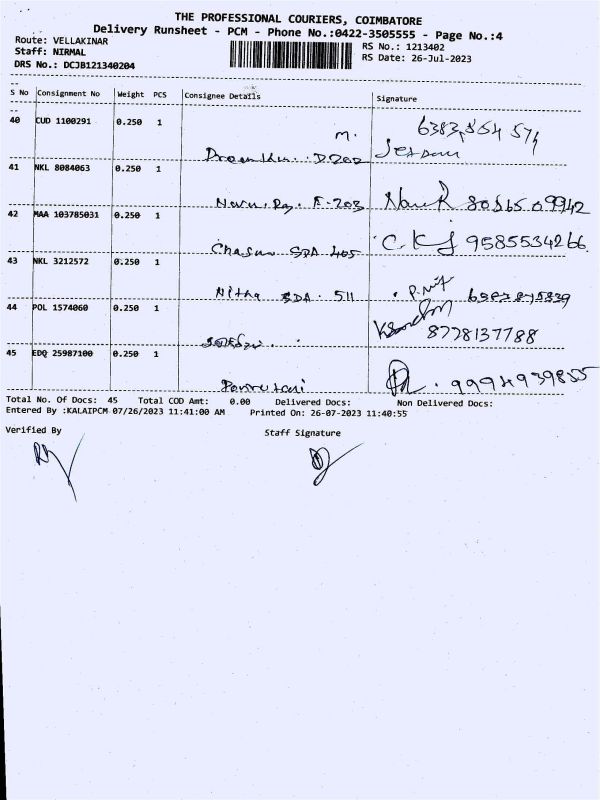 THE PROFESSIONAL COURIERS, COIMBATORE
Delivery Runsheet - PCM - Phone No.:0422-3505555 - Page No.:4
Route: VELLAKINAR
Staff: NIRMAL
DRS No.: DCJB121340204
RS No.: 1213402
RS Date: 26-Jul-2023
S No Consignment No Weight PCS Consignee Details Signature
40 CUD 1100291 0.250 1
M.
D202
41 NKL 8084063 0.250 1
203
42 MAA 103785031 0.250 1
SDA 405 C.K 9585534266
43 NKL 3212572 0.250 1
Nitha SDA. 511
44 POL 1574060 0.250 1
8778137788
45 EDQ 25987100 0.250 1
9994939855
Total No. Of Docs: 45 Total COD Amt: 0.00 Delivered Docs: Non Delivered Docs:
Entered By :KALAIPCM 07/26/2023 11:41:00 AM Printed On: 26-07-2023 11:40:55
Verified By Staff Signature